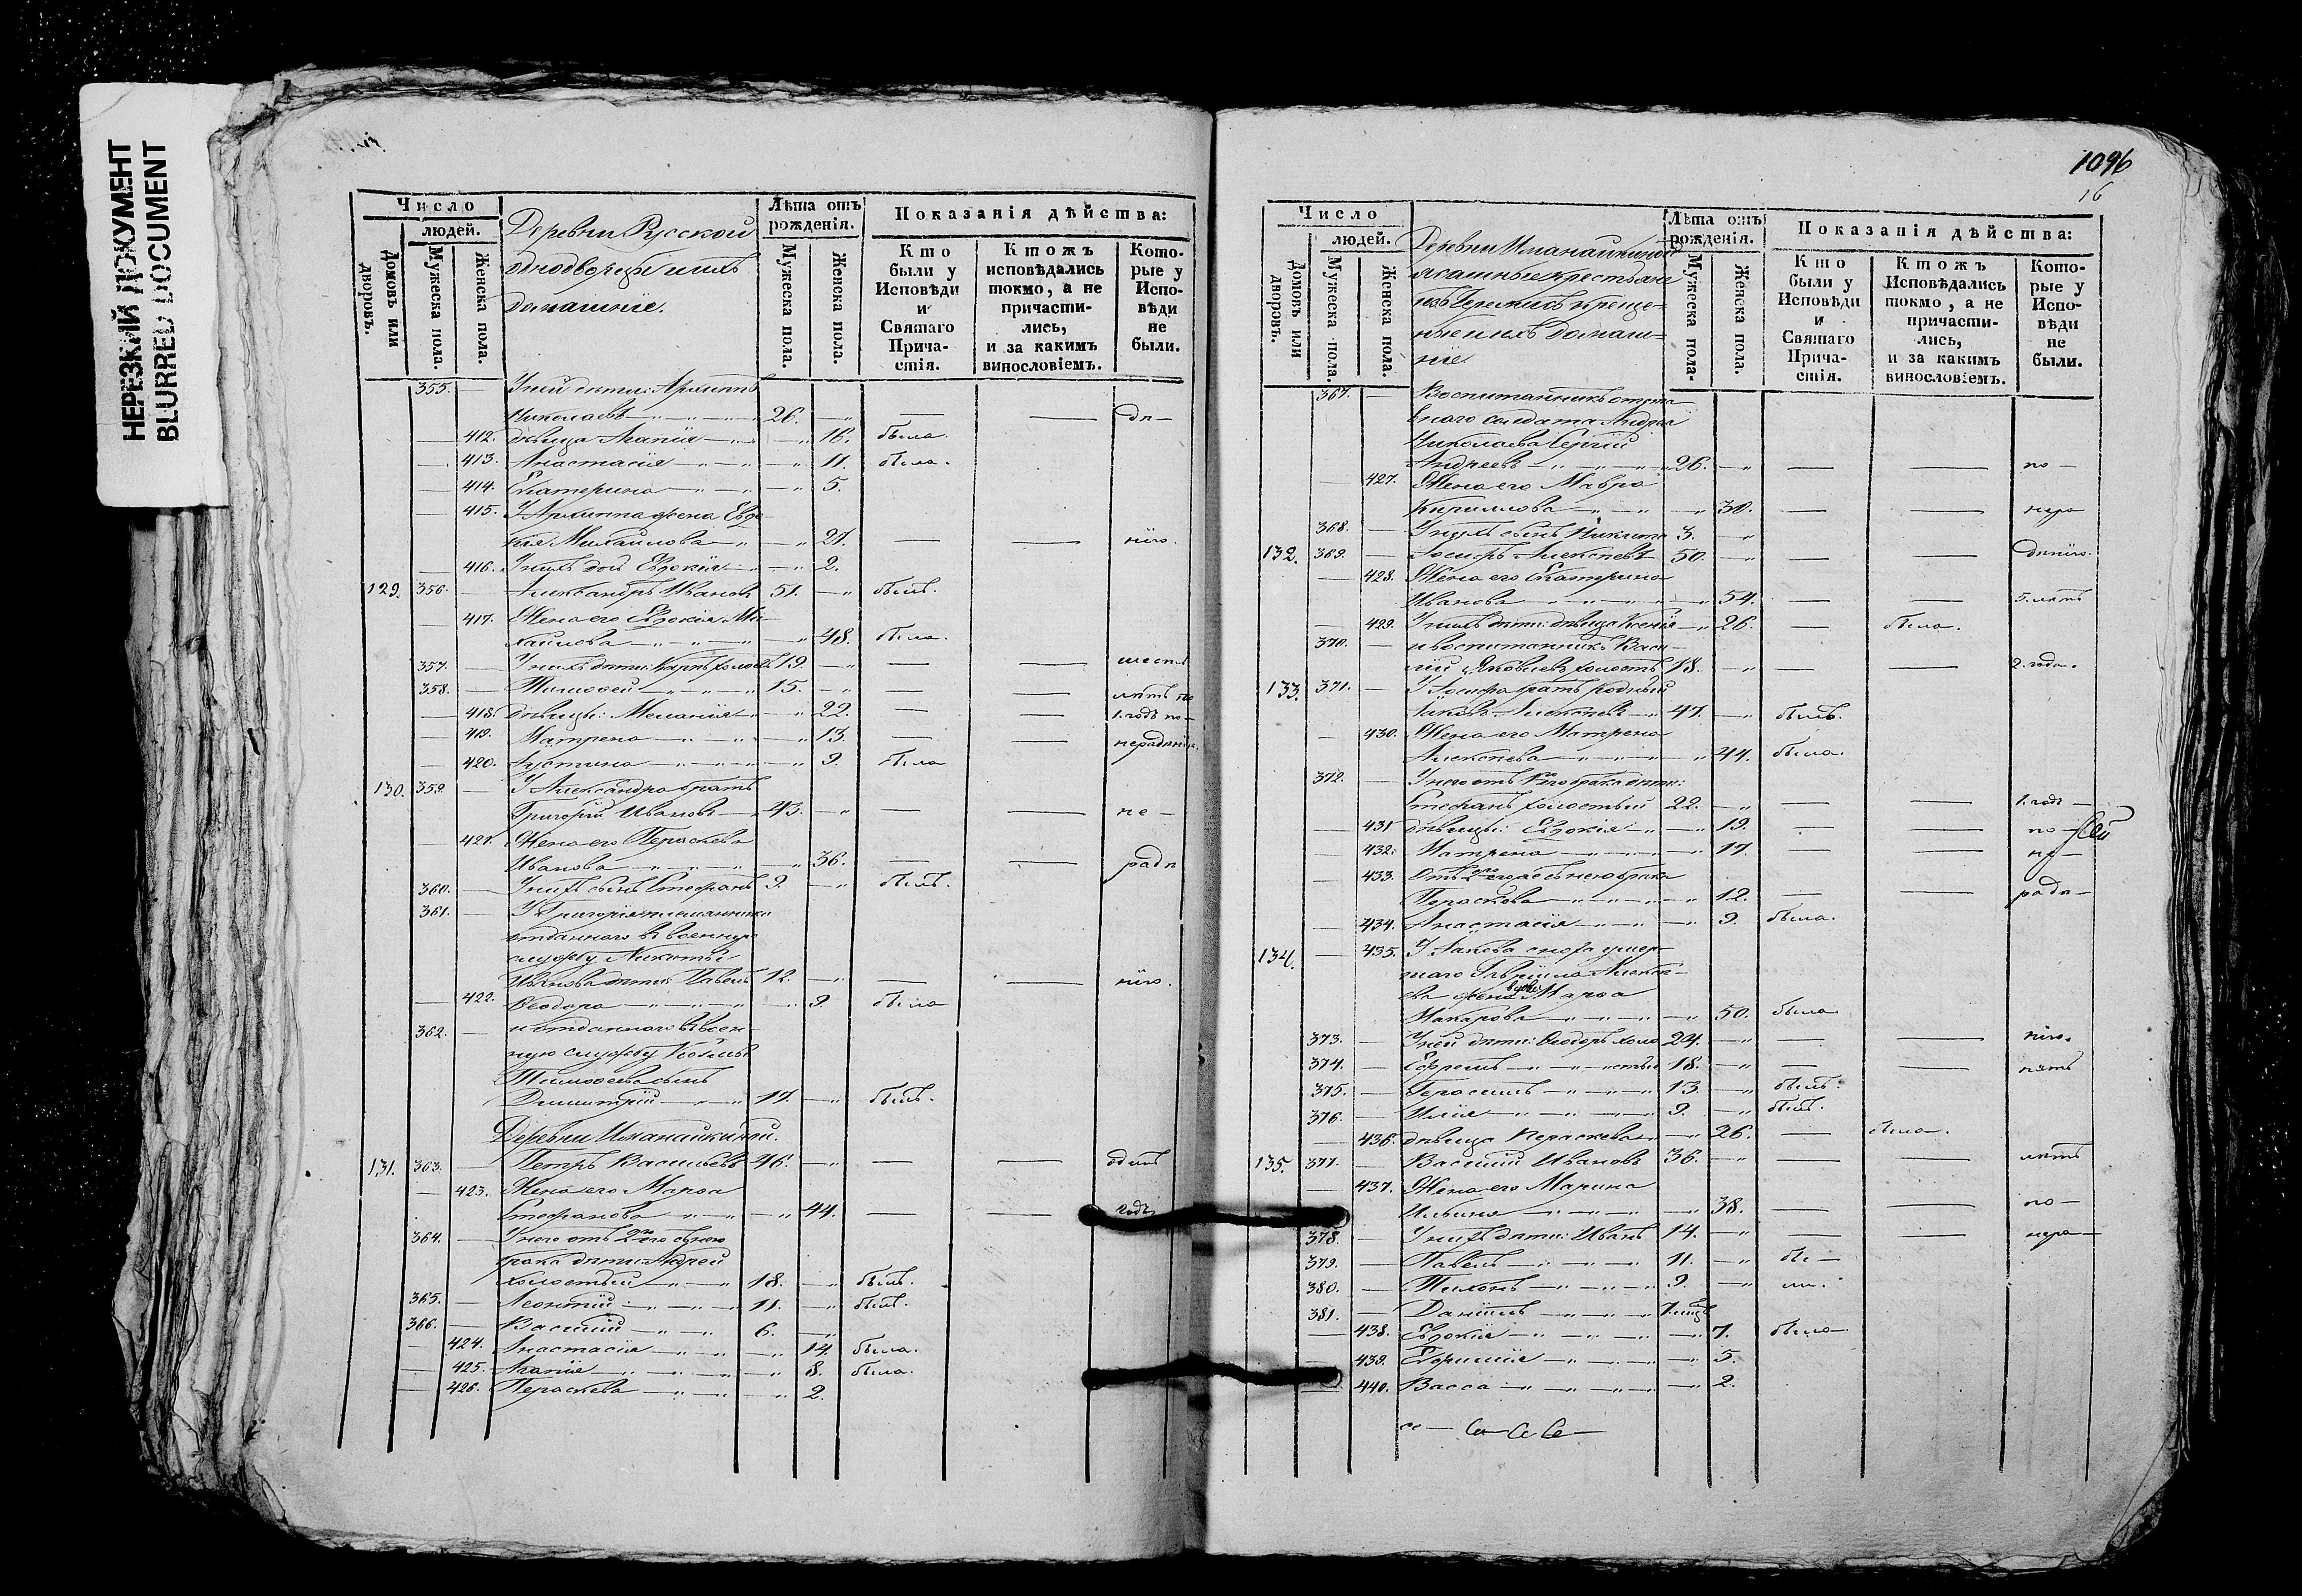 НЕРЕЗКИЙ ДОКУМЕНТ
BLURRED DOCUMENT
Число
людей.
Домовъ или дворовъ.
Мужеска пола.
Женска пола.
Деревни Русской
однодворцы и ихъ
домашніе.
Лѣта отъ рожденія.
Мужеска пола.
Женска пола.
Показанія дѣйства:
Кто были у Исповѣди и Святаго Причастія.
Ктожъ исповѣдались токмо, а не причастились, и за какимъ винословіемъ.
Которые у Исповѣди не были.
355. — У ней дѣти: Архиппъ
Николаевъ 26. — — —
412. дѣвица Агапія 16. была.
413. Анастасія 11. была.
414. Екатерина 5.
415. У Архиппа жена Евдо-
кія Михайлова 21. — — нію.
416. У нихъ дочь Евдокія 2.
129. 356. Александръ Ивановъ 51. былъ.
417. Жена его Евдокія Ми-
хайлова 48. была.
357. У нихъ дѣти: Карпъ холостъ 19. — —
358. Тимофей 15. — — лѣтъ по
418. дѣвицы: Меланія 22. — — 1. годъ по-
419. Матрена 13. — — нерадѣнію.
420. Іустина 9. была
130. 359. У Александра братъ
Григорій Ивановъ 43. — — не-
421. Жена его Параскева
Иванова 36. — — радѣ
360. У нихъ сынъ Стефанъ 9. былъ.
361. У Григорія племянника
отданнаго въ военную
службу Никиты
Иванова дѣти: Павелъ 12. — — нію.
422. Ѳеодора 9. была
362. и отданнаго въ воен-
ную службу Козьмы
Тимофеева сынъ
Димитрій 17. былъ.
Деревни Иманайкиной.
131. 363. Петръ Васильевъ 46. — — одинъ
423. Жена его Марѳа
Стефанова 44. — — годъ
364. У него отъ 2го съ нею
брака дѣти: Андрей
холостый 18. былъ.
365. Леонтій 11. былъ.
366. Василій 6.
424. Анастасія 14. была.
425. Агапія 8. была.
426. Параскева 2.
1096
16
Число
людей.
Домовъ или дворовъ.
Мужеска пола.
Женска пола.
Деревни Иманайкиной
ясашные крестьяне
изъ креще-
ные и ихъ домаш-
ніе.
Лѣта отъ рожденія.
Мужеска пола.
Женска пола.
Показанія дѣйства:
Кто были у Исповѣди и Святаго Причастія.
Ктожъ Исповѣдались токмо, а не причастились, и за какимъ винословіемъ.
Которые у Исповѣди не были.
367. Воспитанникъ отста-
внаго солдата Андрея
Николаева Сергій
Андреевъ 26. — — по-
427. Жена его Мавра
Кириллова 30. — — нера
368. У нихъ сынъ Никита 3.
132. 369. Іосифъ Алексѣевъ 50. — — дѣнію.
428. Жена его Екатерина
Иванова 54. — — 5. лѣтъ
429. У нихъ дѣти: дѣвица Ксенія 26. — была.
370. и воспитанникъ Васи-
лій Яковлевъ холостъ 18. — — 2. года.
133. 371. У Іосифа братъ родный
Іаковъ Алексѣевъ 47. былъ.
430. Жена его Матрена
Алексѣева 44. была.
372. У него отъ 1го брака дѣти:
Стефанъ холостый 22. — — 1. годъ —
431 дѣвицы: Евдокія 19. — — по —
432. Матрена 17. — — не —
433. Отъ 2го съ нею брака
Параскева 12. — — радѣ —
434. Анастасія 9. была.
134. 435. У Іакова сноха умер-
шаго Гавріила Алексѣе-
ва жена вдова Марѳа
Макарова 50. была.
373. У ней дѣти: Ѳеодоръ холо 24. — — нію.
374. Ефремъ стые 18. — — пять
375. Герасимъ 13. былъ.
376. Илія 9. былъ.
436. дѣвица Параскева 26. — была.
135. 377. Василій Ивановъ 36. — — лѣтъ
437. Жена его Марина
Ильина 38. — — по —
378. У нихъ дѣти: Иванъ 14. — — нера —
379. Павелъ 11. бы —
380. Тихонъ 9. ли.
381. Даніилъ
438. Евдокія 7. была
439. Ефимія 5.
440. Васса 2.